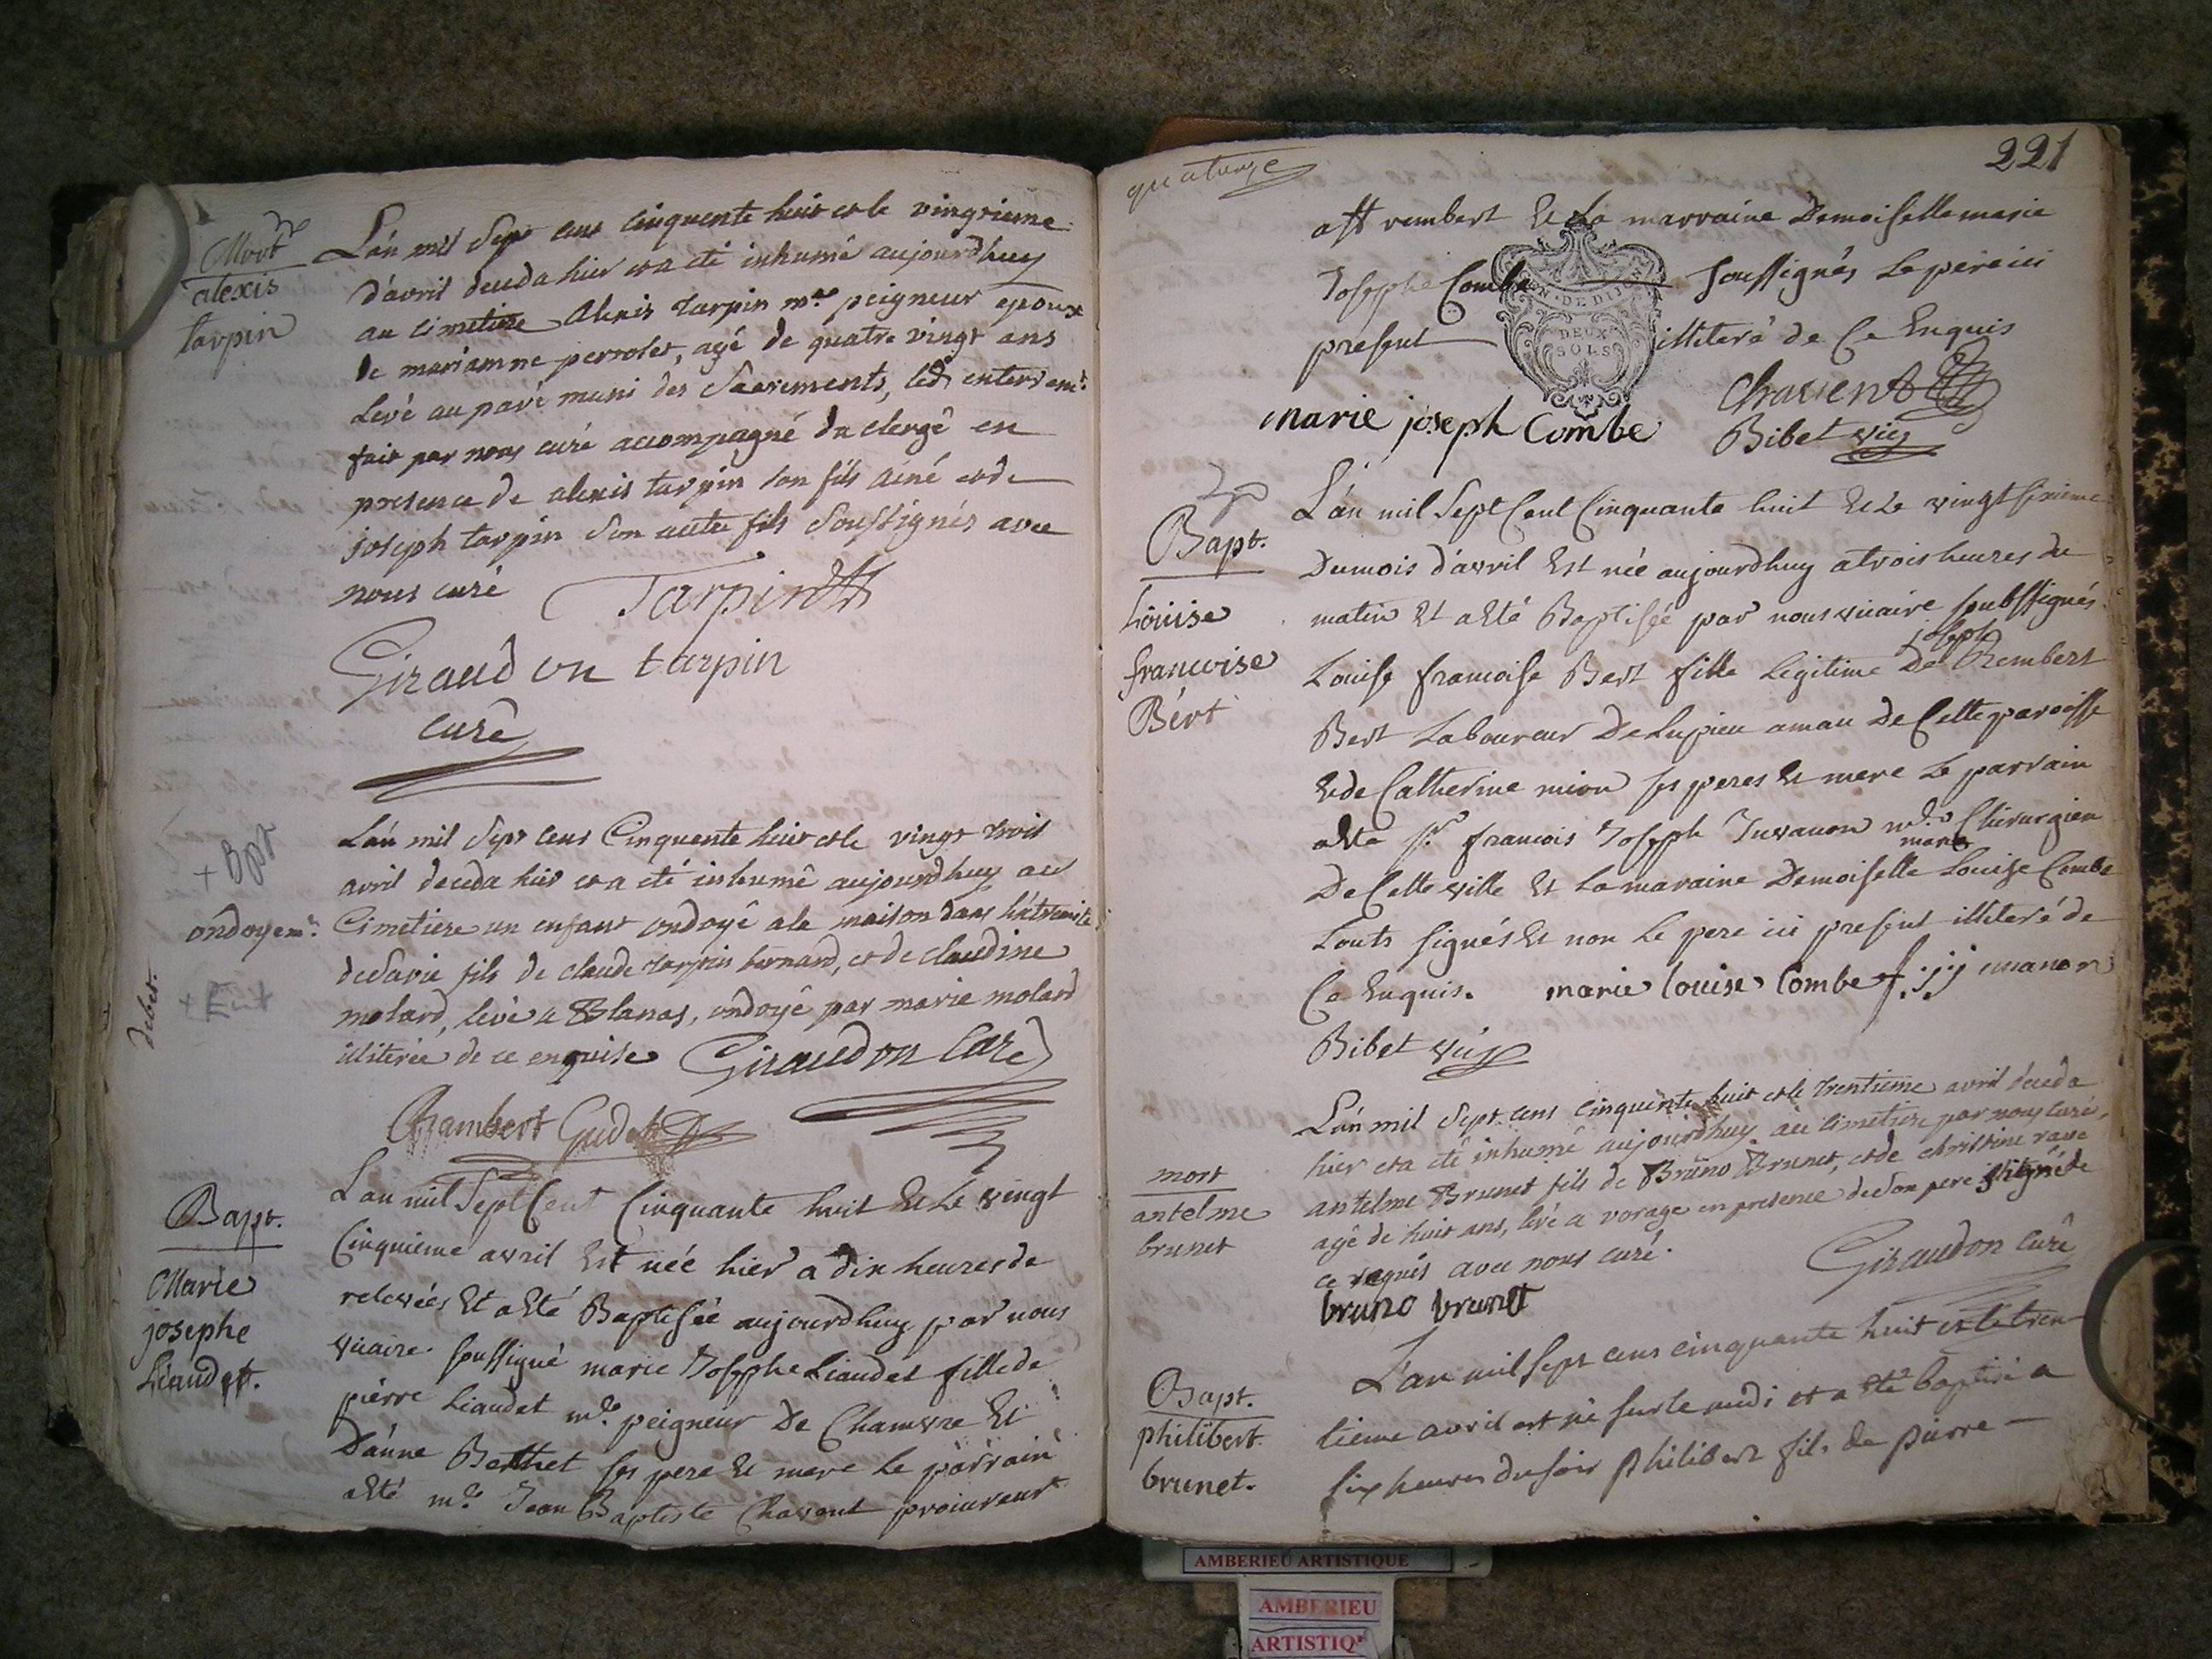 Mort
alexis
tarpin
L'an mil sept cens cinquente huit et le vingtieme
d'avril deceda hier et a eté inhumé aujourd'huy
au cimetiere Alexis tarpin me peigneur epoux
de mariamne perrolet, agé de quatre vingt ans
levé au pavé muni des Sacrements, led enterrem.t
fait par nous curé accompagné du clergé en
presence de alexis tarpin son fils ainé et de
joseph tarpin son autre fils soussignés avec
nous curé Tarpin
Giraudon tarpin
curé
+ Bpt
ondoyem.t
+ Ent
debet.
L'an mil sept cens Cinquente huit et le vingt trois
avril deceda hier et a eté inhumé aujourd'huy au
Cimetiere un enfant ondoyé a la maison dans l'extremité
de sa vie fils de claude tarpin bernard, et de claudine
molard, levé a Blanas, ondoyé par marie molard
illiterée de ce enquise Giraudon Curé
Chambert Gudet
Bapt.
Marie
josephe
Liaudet.
L'an mil Sept Cent Cinquante huit Et Le vingt
Cinquieme avril Est née hier a dix heures de
relevées Et a Eté Baptisée aujourdhuy par nous
vicaire soussigné marie Josephe Liaudet fille de
pierre Liaudet me peigneur De Chamvre Et
D'anne Berthet ses pere Et mere le parrain
a Eté me Jean Baptiste Chavent procureur
quatorze
221
a St rembert Et La marraine Demoiselle marie
Josephe Combe soussignés le pere ici
present illiteré de Ce Enquis
GEN · DE DIJON
DEUX
SOLS
Chavent
marie joseph Combe Bibet vic
Bapt.
Louise
francoise
Bért
L'an mil Sept Cent Cinquante huit Et Le vingt sixieme
Du mois d'avril Est née aujourdhuy a trois heures du
matin Et a Eté Baptisée par nous vicaire soubssignés
joseph
Louise francoise Bert fille legitime De Rembert
Bert Laboureur De Lupieu aman De Cette paroisse
Et de Catherine mion ses peres Et mere Le parrain
a Eté Sr francois Joseph Juvanon me Chirurgien
marie
De Cette ville Et La maraine Demoiselle Louise Combe
touts signés Et non Le pere ici present illiteré de
Ce Enquis. marie louise Combe f. j. juvanon
Bibet vic
mort
antelme
brunet
L'an mil sept cens cinquente huit et le trentieme avril deceda
hier et a eté inhumé aujourd'huy au cimetiere par nous curé,
antelme Brunet fils de Bruno Brunet, et de christine rave
agé de huit ans, levé a vorage en presence de son pere signé de
ce requis avec nous curé.
Giraudon curé
bruno brunet
Bapt.
philibert
brunet.
L'an mil sept cens cinquante huit et le tren-
tieme avril est né sur le midi et a eté baptisé a
six heures du soir philibert fils de pierre
AMBERIEU ARTISTIQUE
AMBERIEU
ARTISTIQ